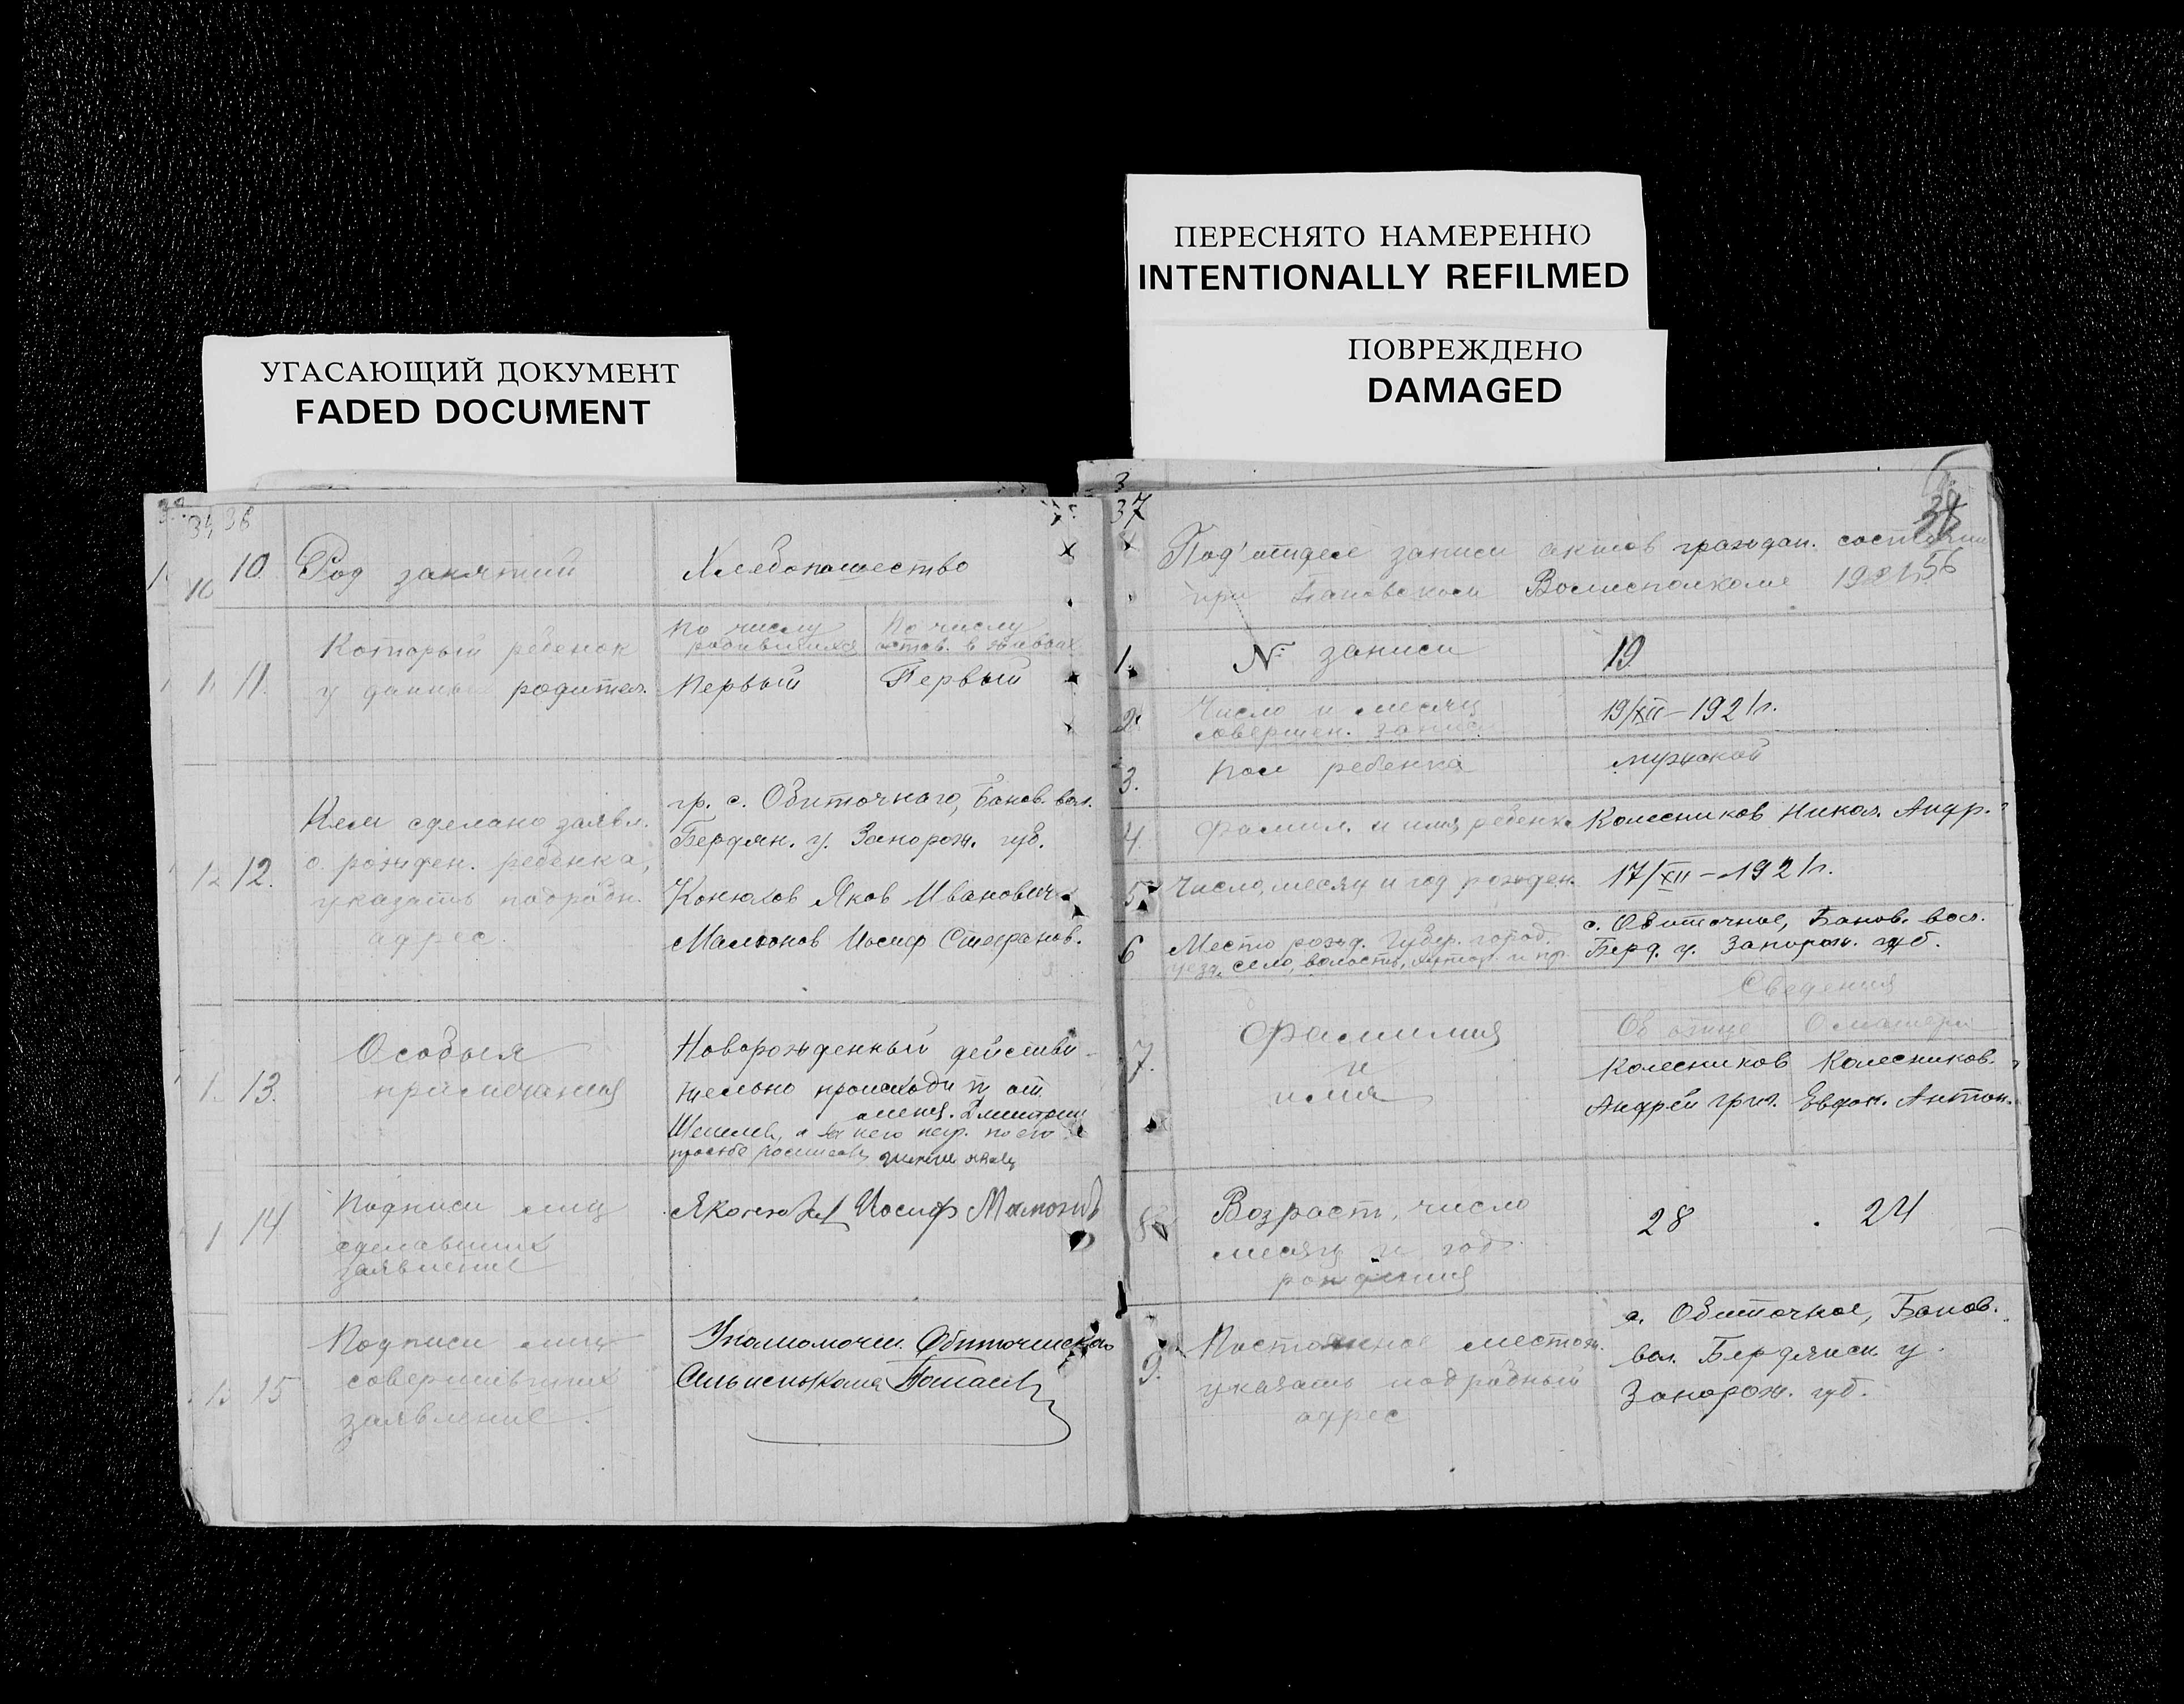 УГАСАЮЩИЙ ДОКУМЕНТ
FADED DOCUMENT
ПЕРЕСНЯТО НАМЕРЕННО
INTENTIONALLY REFILMED
ПОВРЕЖДЕНО
DAMAGED
36
10. Род занятий Хлебопашество
11. Который ребенок у данных родител.
По числу родившихся По числу остав. в живых
Первый Первый
12. Кем сделано заявл.
о рожден. ребенка,
указать подробн.
адрес.
гр. с. Обиточнаго, Банов. вол.
Бердян. у. Запорож. губ.
Конюхов Яков Иванович
Мамонов Иосиф Стефанов.
13. Особыя
примечания
Новорожденный действи-
тельно происходит от
просьбе
14 Подписи лиц
сделавших
заявление
Иосиф Мамонов
15 Подписи лиц
совершивших
заявление.
Уполномочен. Обиточнскаго
37
38
56
Под'отделе записи актов граждан. состояния
при Бановском Волисполкоме 1921
1. № записи 19
2. Число и месяц
совершен. записи
19/XII-1921г.
3. Пол ребенка мужской
4. Фамил. и имя ребенка Колесников Никол. Андр.
5. Число, месяц и год рожден. 17/XII-1921г.
6 Место рожд. Губер. город.
уезд, село, волость, хутор. и пр.
с. Обиточное, Банов. вол.
Берд. у. Запорож. губ.
Сведения
Об отце О матери
7. Фамилия
и
имя
Колесников Колесников.
Андрей Григ. Евдок. Антон.
8. Возраст, число
месяц и год
рождения
28 24
9. Постоянное местож.
указать подробный
адрес
с. Обиточное, Банов.
вол. Бердянск. у.
Запорож. губ.